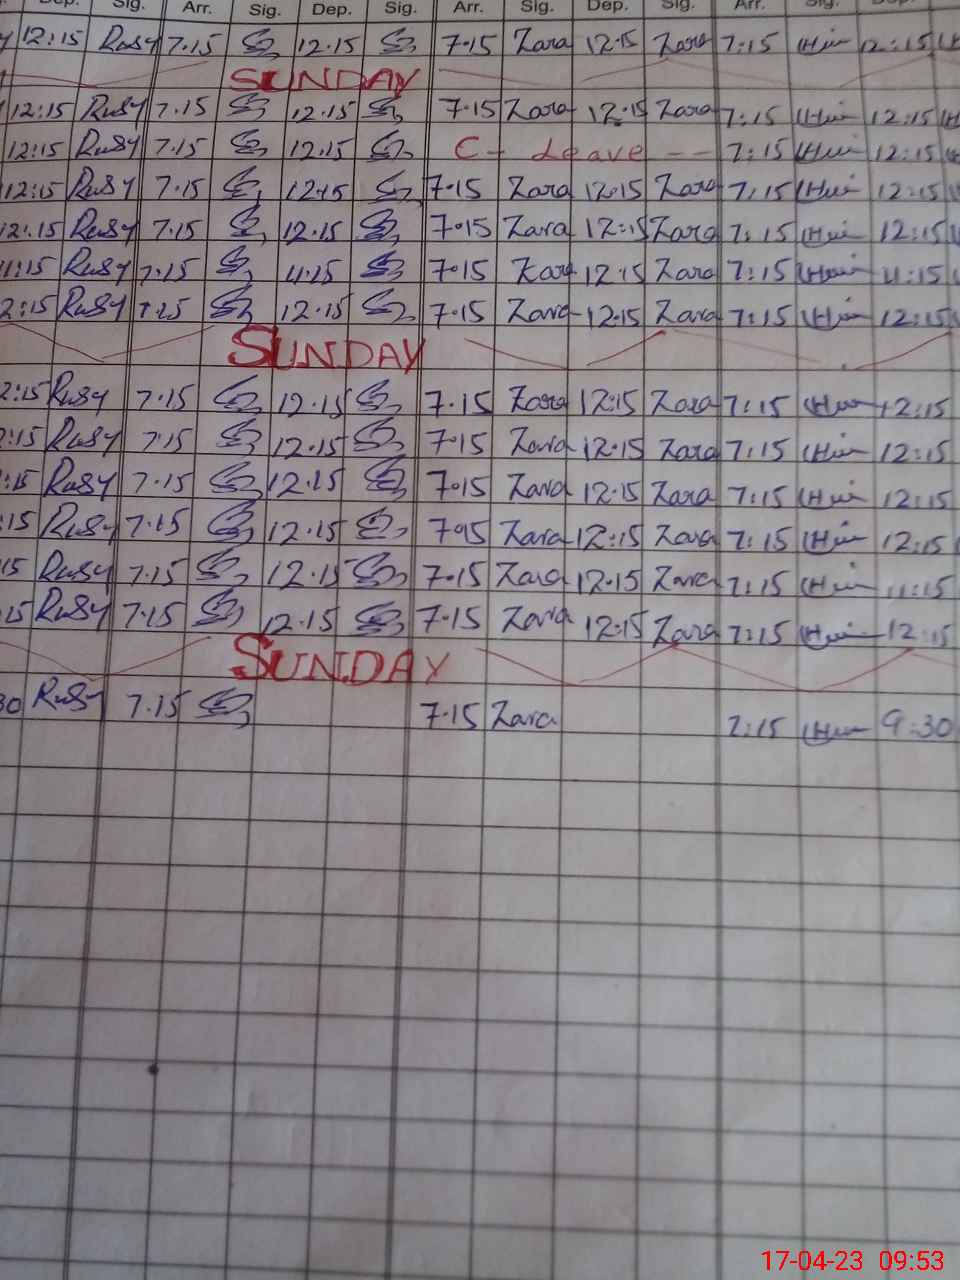 Dep. Sig. Arr. Sig. Dep. Sig. Arr. Sig. Dep. Sig. Arr. Sig. Dep.
12:15 Rusy 7.15 12.15 7.15 Zara 12.15 Zara 7:15 12:15
SUNDAY
12:15 Rusy 7.15 12.15 7.15 Zara 12.15 Zara 7:15 12:15
12:15 Rusy 7.15 12.15 C- Leave -- 7:15 12:15
12:15 Rusy 7.15 12.15 7.15 Zara 12.15 Zara 7:15 12:15
12:15 Rusy 7.15 12.15 7.15 Zara 12:15 Zara 7:15 12:15
11:15 Rusy 7.15 11.15 7.15 Zara 12.15 Zara 7:15 11:15
2:15 Rusy 7.15 12.15 7.15 Zara 12.15 Zara 7:15 12:15
SUNDAY
2:15 Rusy 7.15 12.15 7.15 Zara 12:15 Zara 7:15 12:15
:15 Rusy 7.15 12.15 7.15 Zara 12.15 Zara 7:15 12:15
:15 Rusy 7.15 12.15 7.15 Zara 12.15 Zara 7:15 12:15
:15 Rusy 7.15 12.15 7.15 Zara 12:15 Zara 7:15 12:15
15 Rusy 7.15 12.15 7.15 Zara 12.15 Zara 7:15 11:15
15 Rusy 7.15 12.15 7.15 Zara 12.15 Zara 7:15 12:15
SUNDAY
30 Rusy 7.15 7.15 Zara 7:15 9:30
17-04-23 09:53